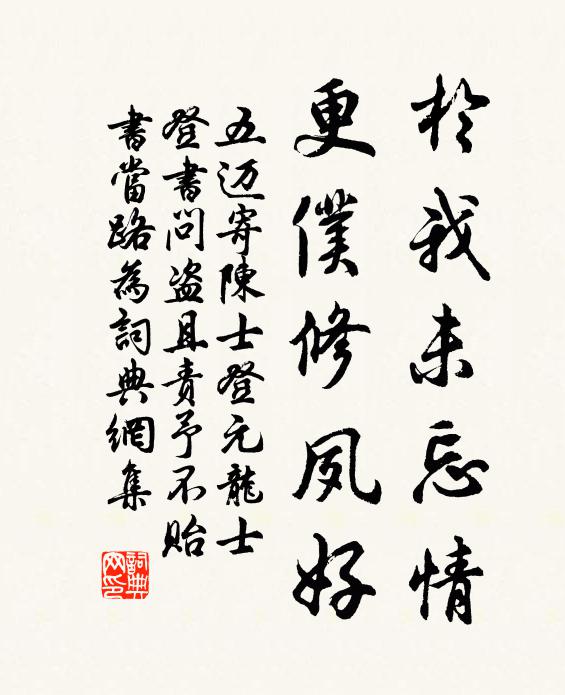 於我未忘情
更僕修夙好
五迈寄陳士登元龍士
登書問盗且責予不貽
書當路為詞典網集
詞典網印